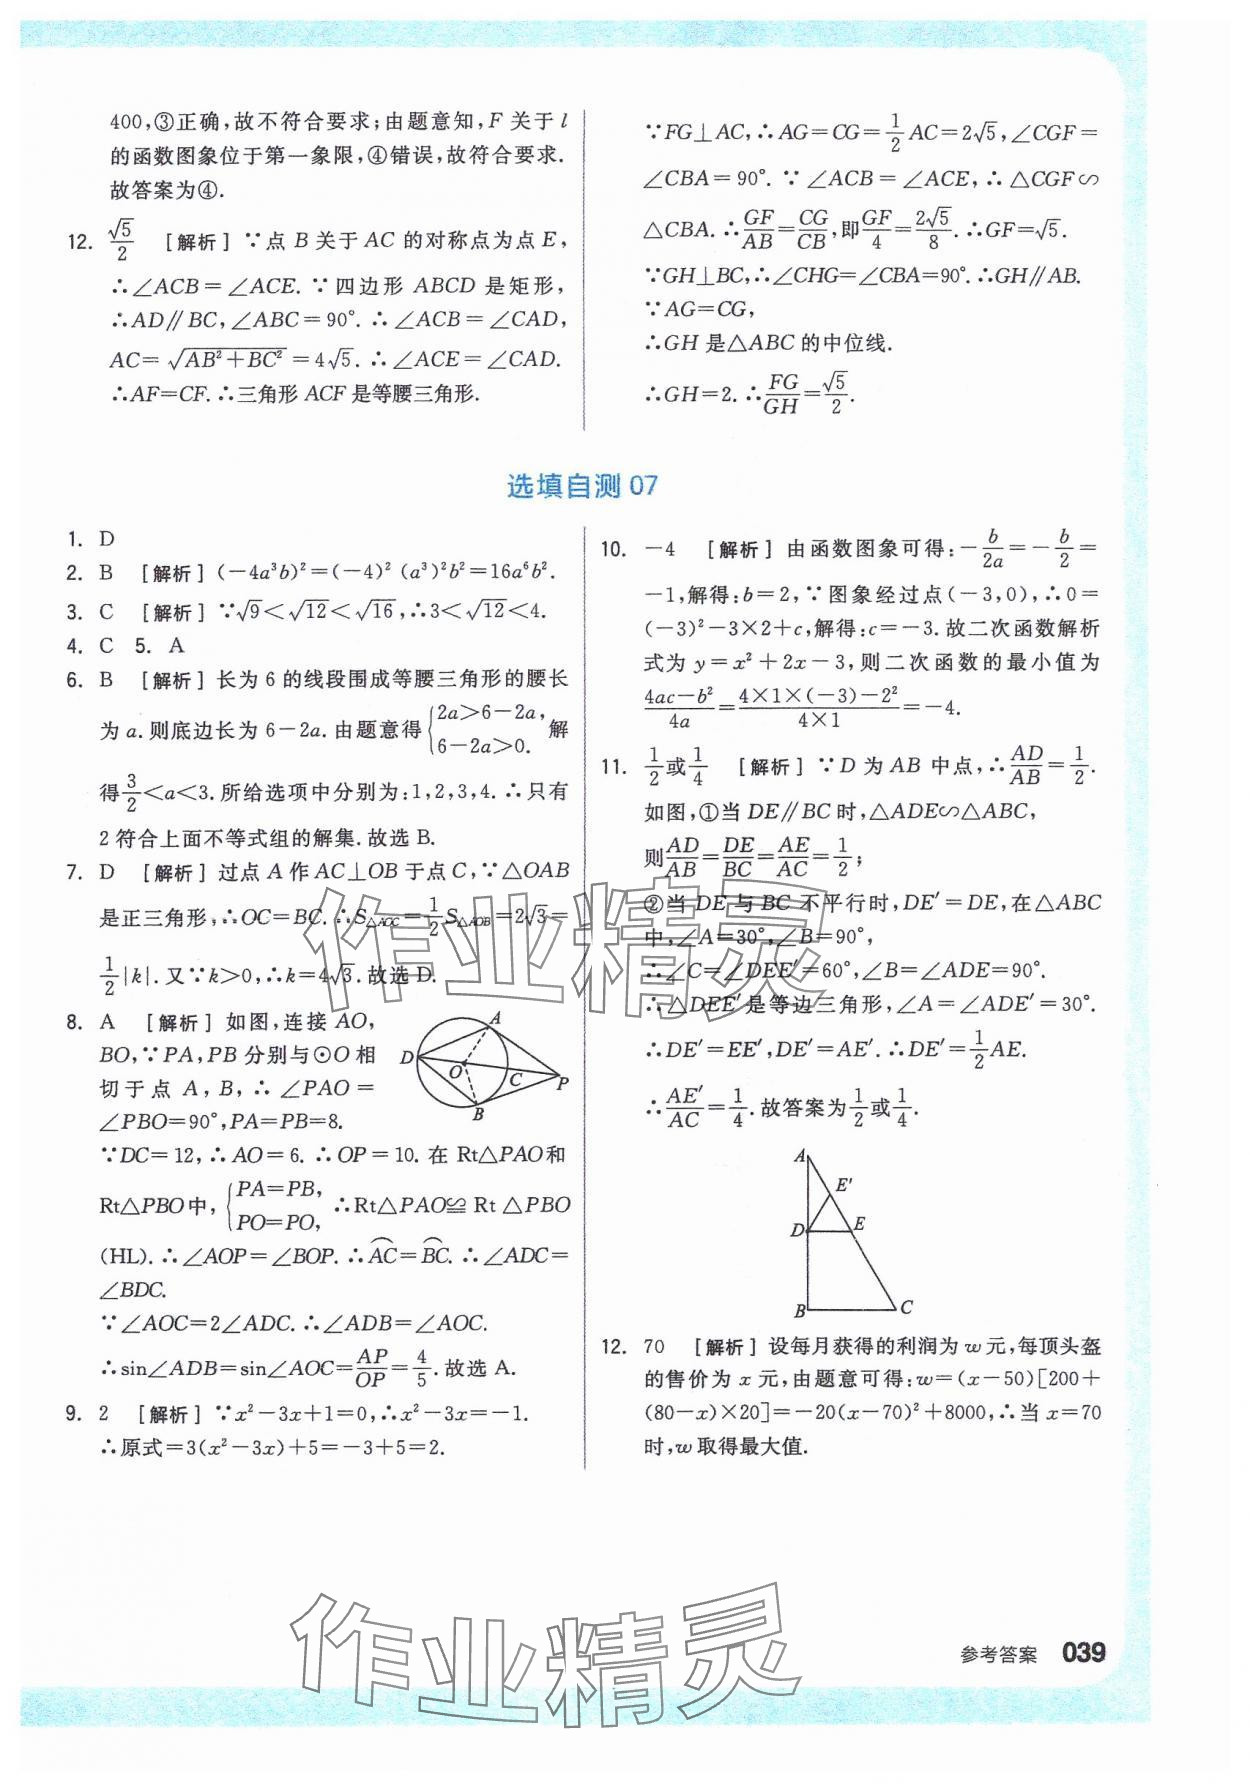 400,③正确,故不符合要求;由题意知,F 关于 l
的函数图象位于第一象限,④错误,故符合要求.
故答案为④.
12. √5/2 [解析] ∵点 B 关于 AC 的对称点为点 E,
∴∠ACB=∠ACE. ∵四边形 ABCD 是矩形,
∴AD∥BC,∠ABC=90°. ∴∠ACB=∠CAD,
AC=√(AB²+BC²)=4√5. ∴∠ACE=∠CAD.
∴AF=CF. ∴三角形 ACF 是等腰三角形.
∵FG⊥AC,∴AG=CG=1/2 AC=2√5,∠CGF=
∠CBA=90°. ∵∠ACB=∠ACE,∴△CGF∽
△CBA. ∴GF/AB=CG/CB,即GF/4=2√5/8. ∴GF=√5.
∵GH⊥BC,∴∠CHG=∠CBA=90°. ∴GH∥AB.
∵AG=CG,
∴GH 是△ABC 的中位线.
∴GH=2. ∴FG/GH=√5/2.
选填自测 07
1. D
2. B [解析] (-4a³b)²=(-4)² (a³)²b²=16a⁶b².
3. C [解析] ∵√9<√12<√16,∴3<√12<4.
4. C 5. A
6. B [解析] 长为 6 的线段围成等腰三角形的腰长
为 a. 则底边长为 6-2a. 由题意得{2a>6-2a, 6-2a>0. 解
得3/2<a<3. 所给选项中分别为:1,2,3,4. ∴只有
2 符合上面不等式组的解集. 故选 B.
7. D [解析] 过点 A 作 AC⊥OB 于点 C,∵△OAB
是正三角形,∴OC=BC. ∴S△AOC=1/2 S△AOB=2√3=
1/2|k|. 又∵k>0,∴k=4√3. 故选 D.
8. A [解析] 如图,连接 AO,
BO,∵PA,PB 分别与⊙O 相
切于点 A,B,∴∠PAO=
∠PBO=90°,PA=PB=8.
∵DC=12,∴AO=6. ∴OP=10. 在 Rt△PAO和
Rt△PBO中,{PA=PB, PO=PO, ∴Rt△PAO≌Rt△PBO
(HL). ∴∠AOP=∠BOP. ∴A͡C=B͡C. ∴∠ADC=
∠BDC.
∵∠AOC=2∠ADC. ∴∠ADB=∠AOC.
∴sin∠ADB=sin∠AOC=AP/OP=4/5. 故选 A.
A
D
O
C
P
B
9. 2 [解析] ∵x²-3x+1=0,∴x²-3x=-1.
∴原式=3(x²-3x)+5=-3+5=2.
10. -4 [解析] 由函数图象可得:-b/2a=-b/2=
-1,解得:b=2,∵图象经过点(-3,0),∴0=
(-3)²-3×2+c,解得:c=-3. 故二次函数解析
式为 y=x²+2x-3,则二次函数的最小值为
(4ac-b²)/4a=(4×1×(-3)-2²)/(4×1)=-4.
11. 1/2或1/4 [解析] ∵D 为 AB 中点,∴AD/AB=1/2.
如图,①当 DE∥BC 时,△ADE∽△ABC,
则AD/AB=DE/BC=AE/AC=1/2;
②当 DE 与 BC 不平行时,DE'=DE,在△ABC
中,∠A=30°,∠B=90°,
∴∠C=∠DEE'=60°,∠B=∠ADE=90°.
∴△DEE'是等边三角形,∠A=∠ADE'=30°.
∴DE'=EE',DE'=AE'. ∴DE'=1/2AE.
∴AE'/AC=1/4. 故答案为1/2或1/4.
A
E'
D
E
B
C
12. 70 [解析] 设每月获得的利润为 w 元,每顶头盔
的售价为 x 元,由题意可得:w=(x-50)[200+
(80-x)×20]=-20(x-70)²+8000,∴当 x=70
时,w 取得最大值.
作业精灵
作业精灵
参考答案 039